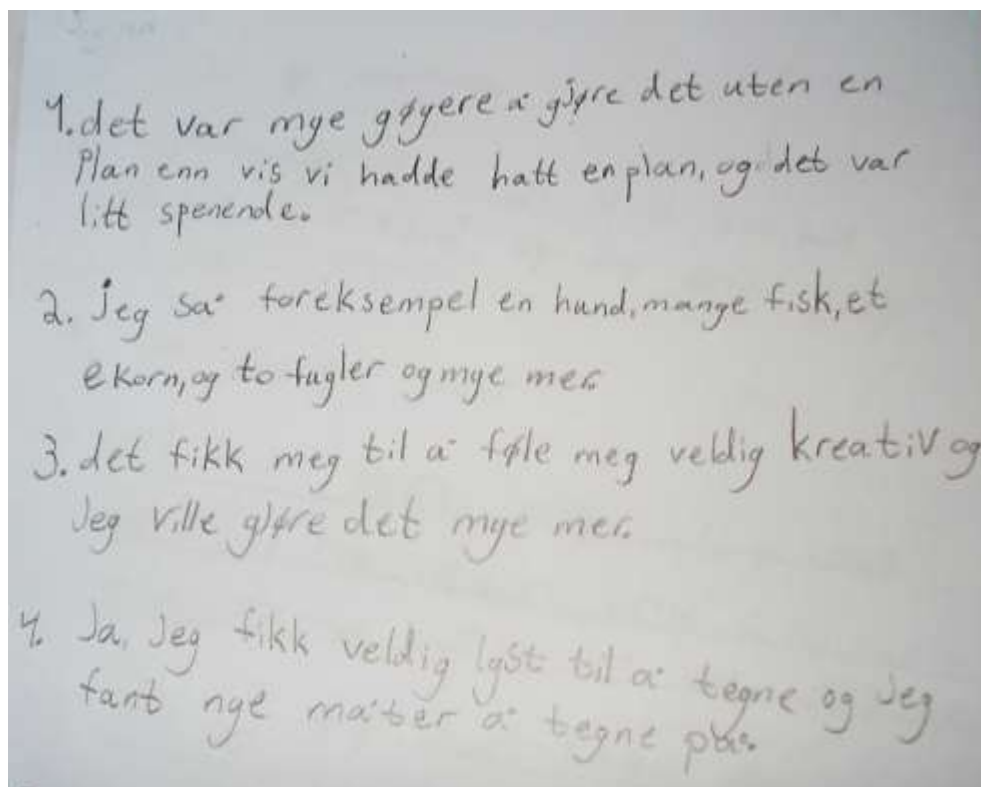 1. det var mye gøyere å gjøre det uten en
Plan enn vis vi hadde hatt en plan, og det var
litt spenende.
2. Jeg så foreksempel en hund, mange fisk, et
ekorn, og to fugler og mye mer.
3. det fikk meg til å føle meg veldig kreativ og
Jeg ville gjøre det mye mer.
4. Ja, Jeg fikk veldig lyst til å tegne og Jeg
fant nye måter å tegne på.